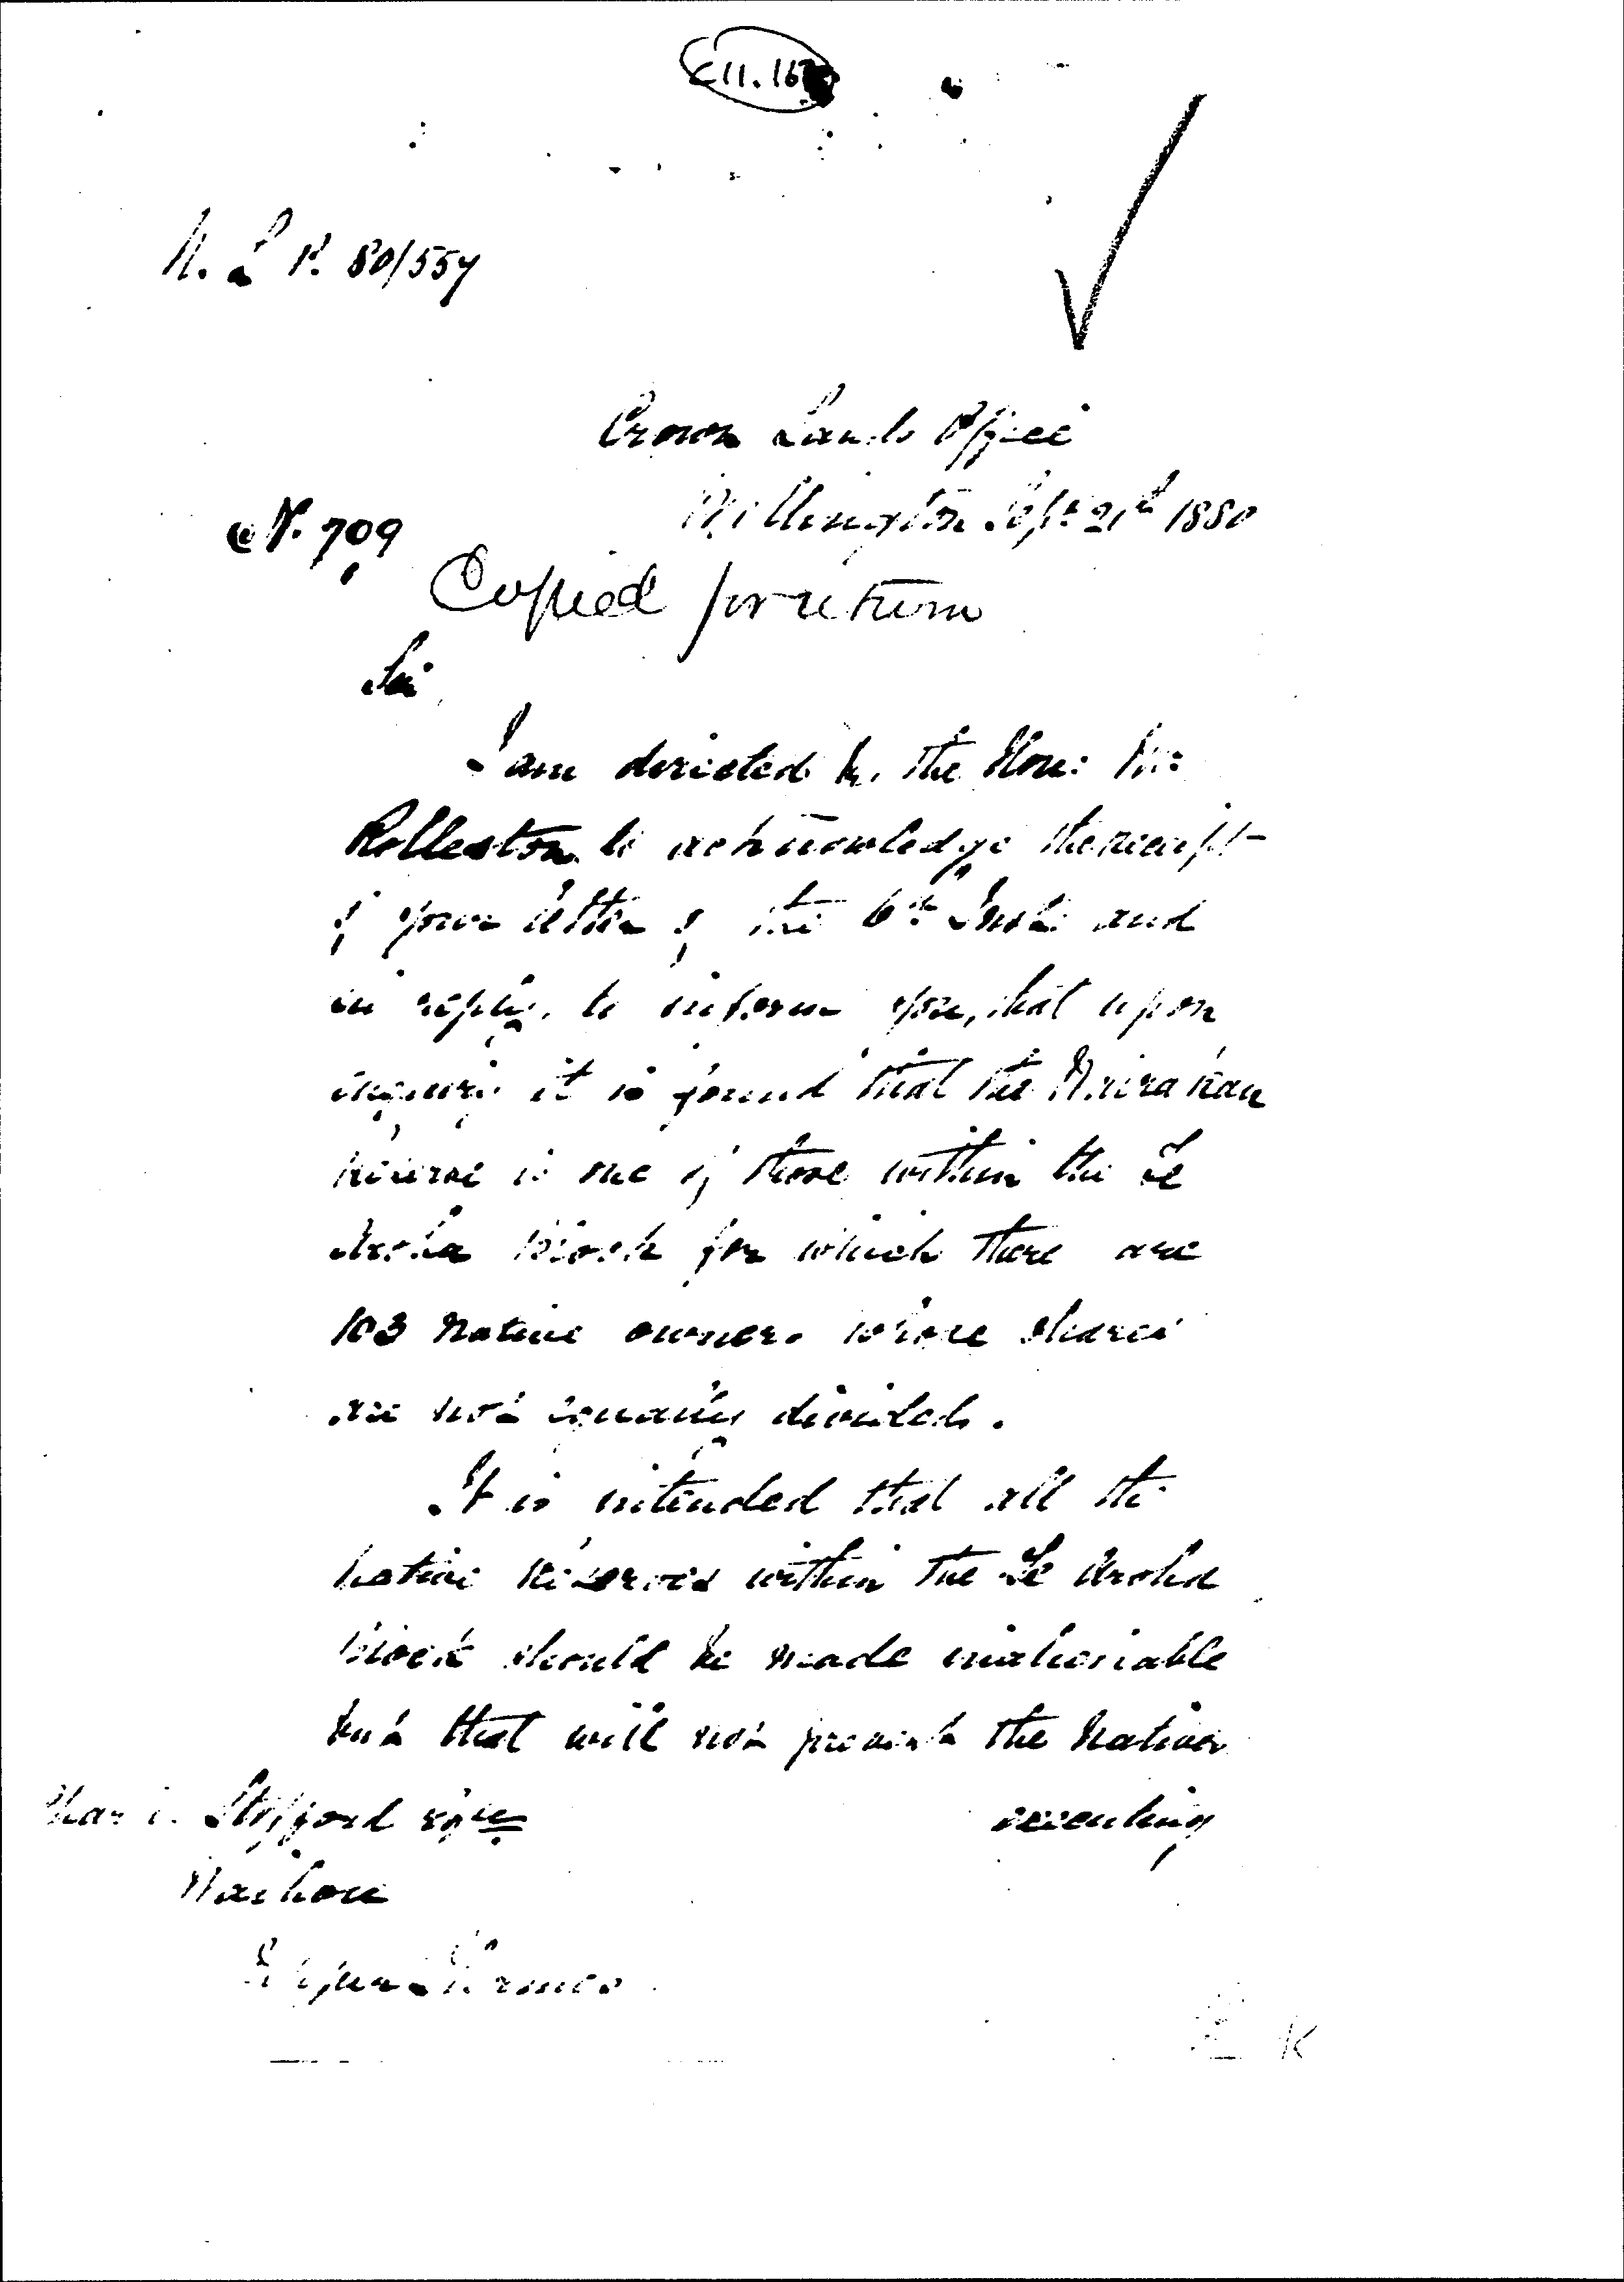 C11.16
N. L P. 80/557
Crown Lands Office
Wellington Sept 21st 1880
No. 709
Copied for return
Sir
I am directed by the Hon: Mr
Rolleston to acknowledge the receipt
of your letter of the 6th Inst: and
in reply, to inform you, that upon
inquiry it is found that the Wairakau
Reserve is one of those within the Te
Aroha Block for which there are
103 Native owners whose shares
are not equally divided.
It is intended that all the
Native Reserves within the Te Aroha
Block should be made inalienable
but that will not prevent the Natives
executing
Stafford Esqre
Waihou
Thames